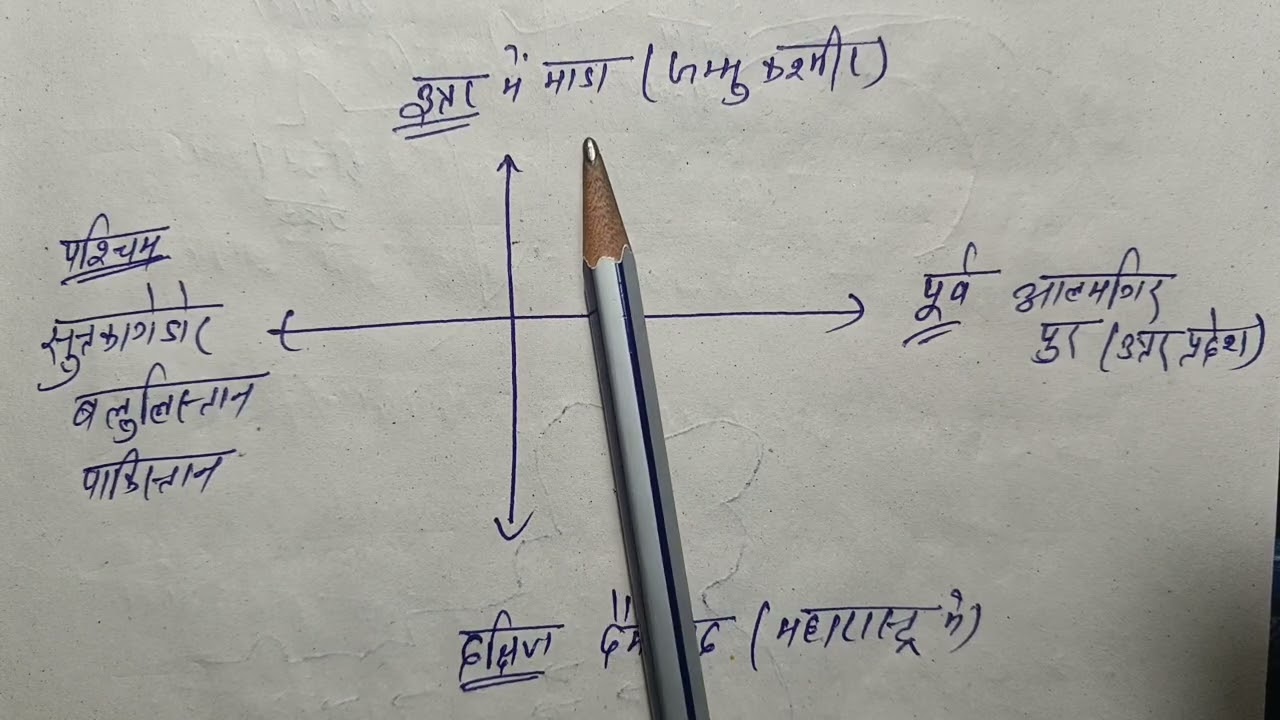 उत्तर में माडा (जम्मु कश्मीर)
पश्चिम
सुत्कागेंडोर
बलुलिस्तान
पाकिस्तान
पूर्व आलमगिर
पुर (उत्तर प्रदेश)
दक्षिण (महारास्ट्र मे)